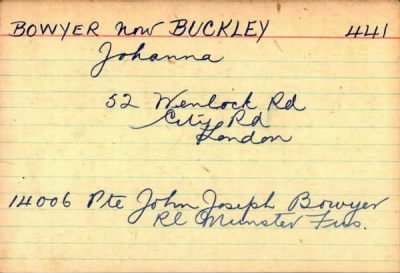 BOWYER now BUCKLEY 441
Johanna
52 Wenlock Rd
City Rd
London
14006 Pte John Joseph Bowyer
Rl Munster Fus.